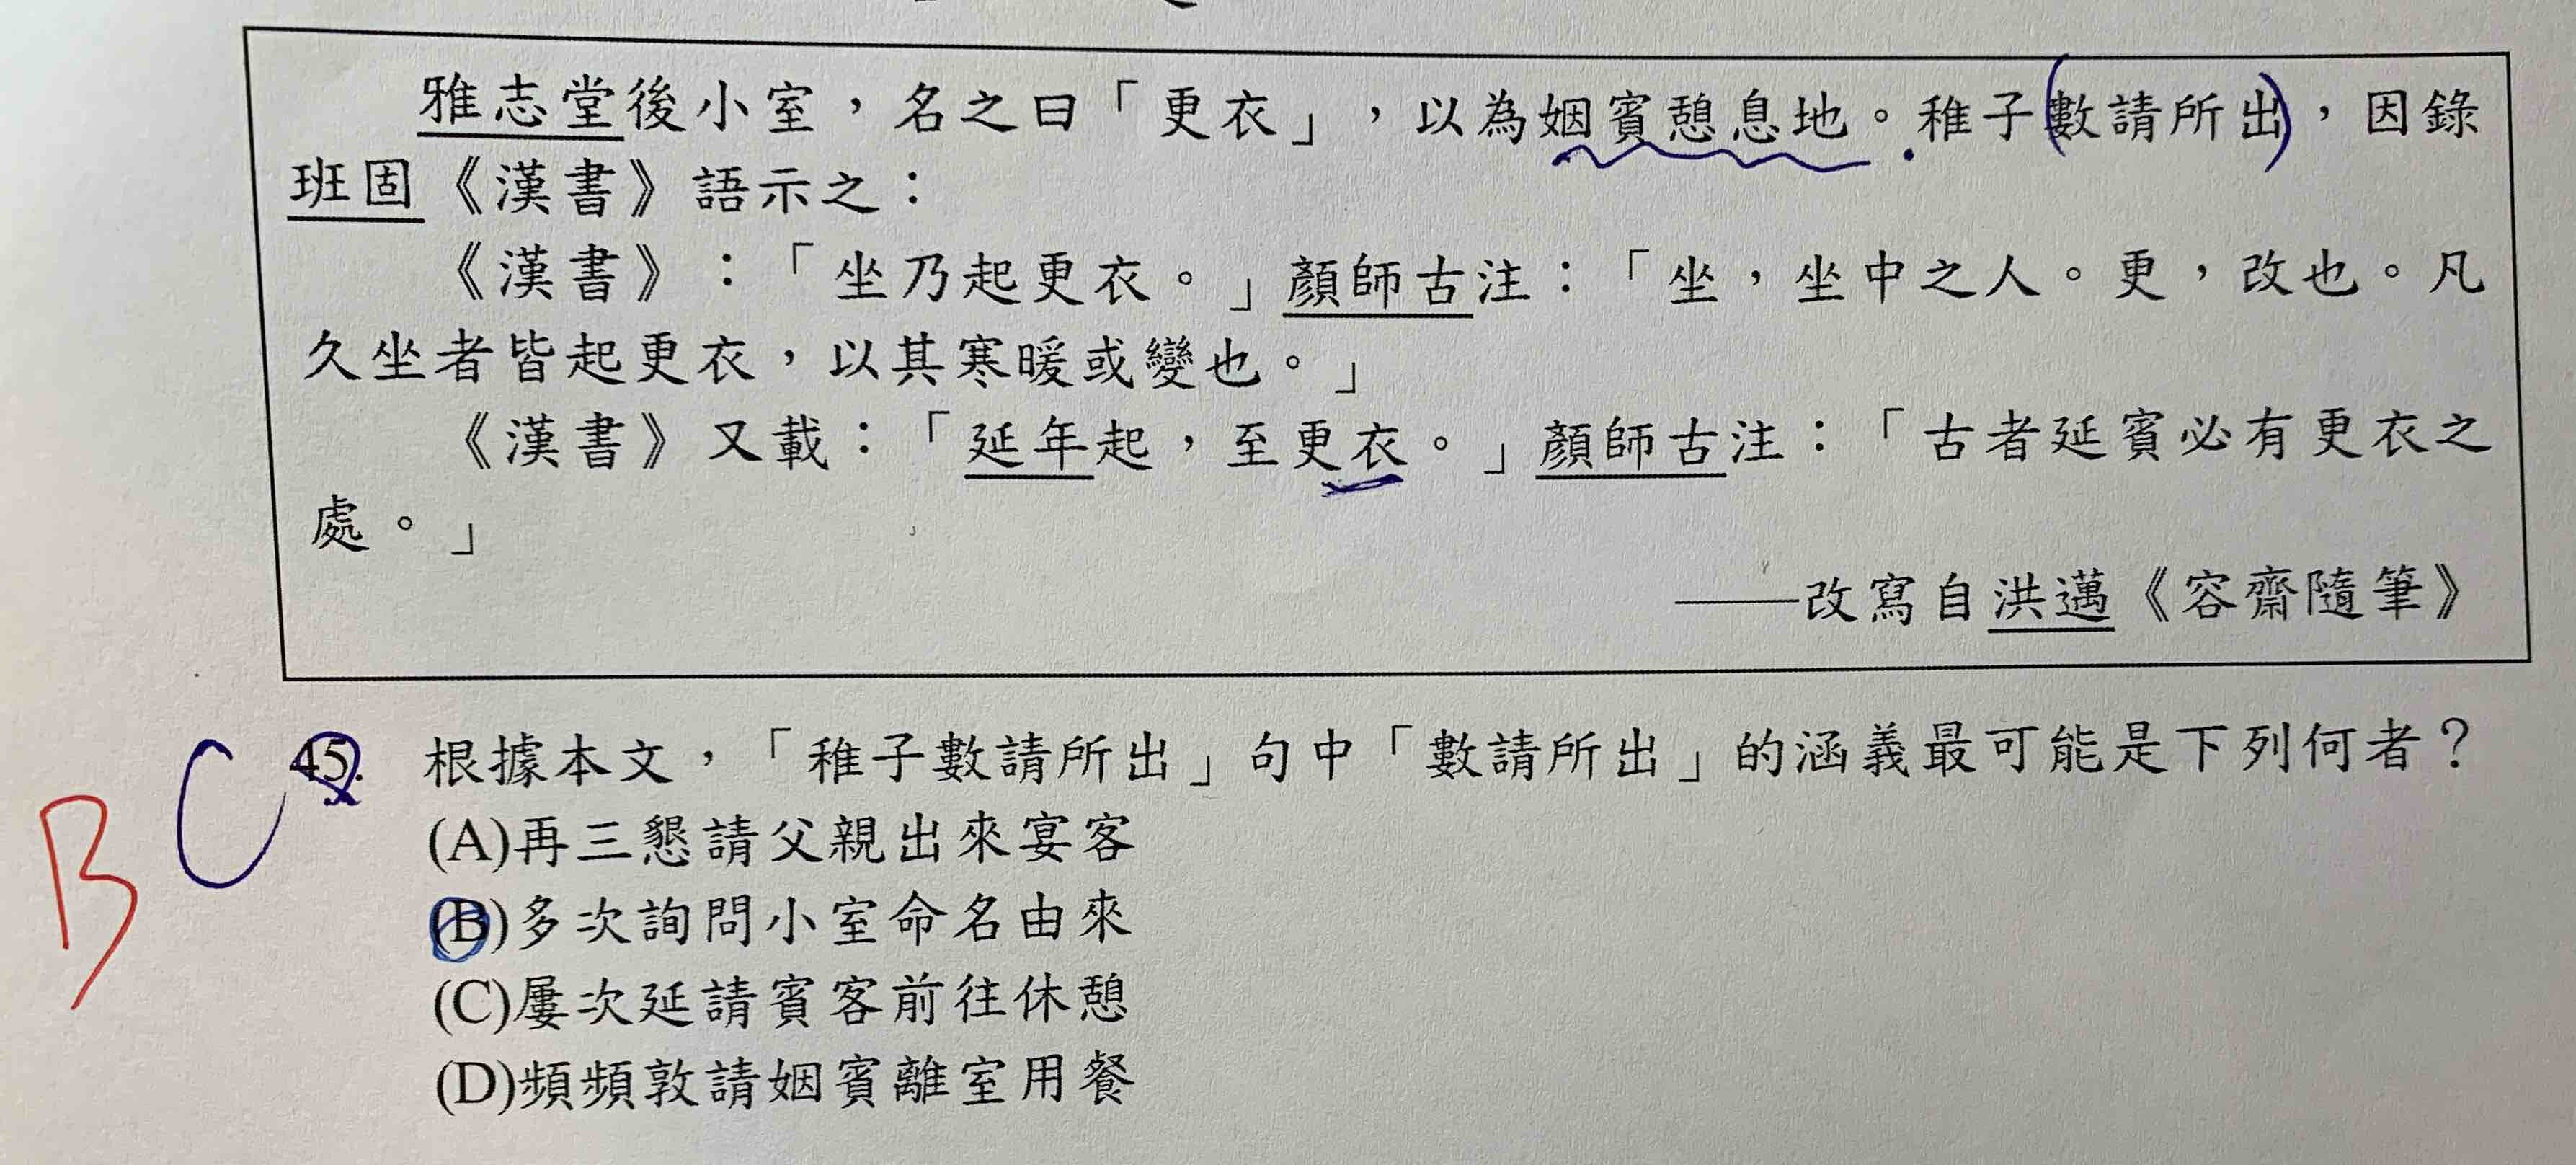 雅志堂後小室，名之曰「更衣」，以為姻賓憩息地。稚子數請所出，因錄
班固《漢書》語示之：
《漢書》：「坐乃起更衣。」顏師古注：「坐，坐中之人。更，改也。凡
久坐者皆起更衣，以其寒暖或變也。」
《漢書》又載：「延年起，至更衣。」顏師古注：「古者延賓必有更衣之
處。」
——改寫自洪邁《容齋隨筆》
B C 45. 根據本文，「稚子數請所出」句中「數請所出」的涵義最可能是下列何者？
(A)再三懇請父親出來宴客
(B)多次詢問小室命名由來
(C)屢次延請賓客前往休憩
(D)頻頻敦請姻賓離室用餐